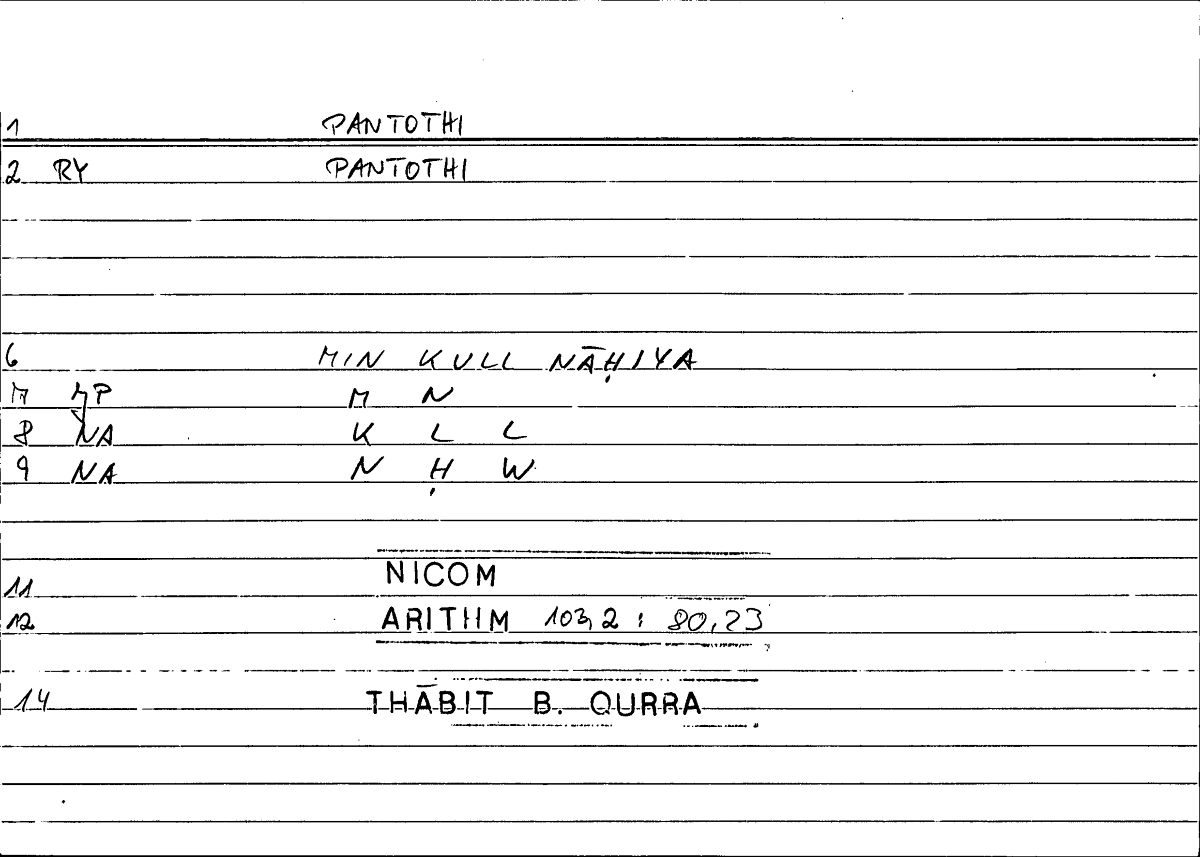 1 PANTOTHI
2 RY PANTOTHI
6 MIN KULL NĀḤIYA
7 JP M N
8 NA K L L
9 NA N Ḥ W
11 NICOM
12 ARITHM 103,2 : 80,23
14 THĀBIT B. QURRA